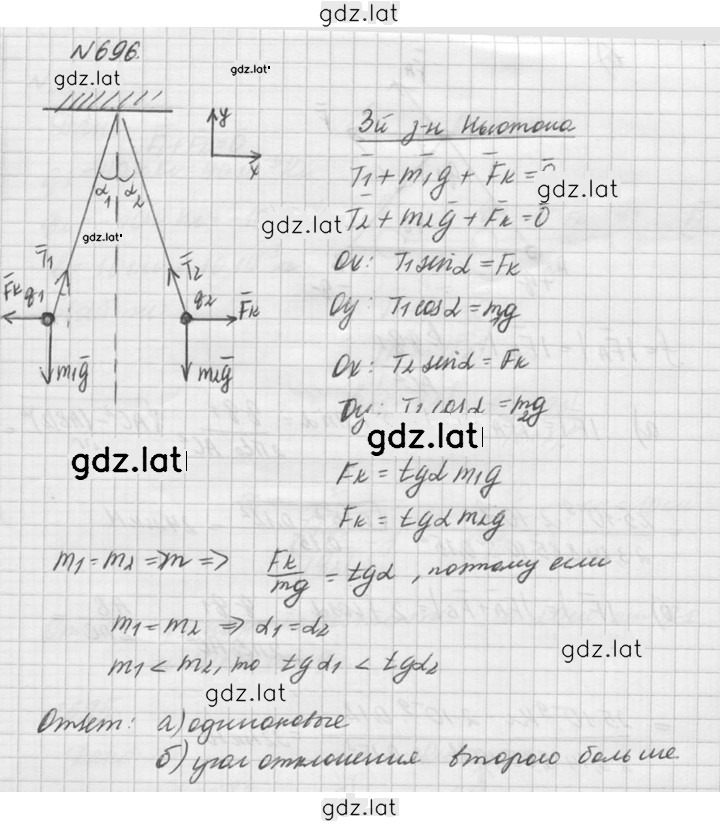 gdz.lat
N696
gdz.lat
gdz.lat
y
x
α1 α2
gdz.lat
T̄1 T̄2
F̄к q1 q2 F̄к
m1ḡ m2ḡ
gdz.lat
3й з-н Ньютона
T̄1 + m̄1g + F̄к = 0̄
gdz.lat
gdz.lat
T̄2 + m2ḡ + F̄к = 0̄
Ox: T1 sinα = Fк
Oy: T1 cosα = m1g
Ox: T2 sinα = Fк
Oy: T2 cosα = m2g
gdz.lat
Fк = tgα m1g
Fк = tgα m2g
m1 = m2 => m => Fк/mg = tgα, поэтому если
m1 = m2 => α1 = α2
gdz.lat
m1 < m2, то tgα1 < tgα2
gdz.lat
Ответ: а) одинаковые
б) угол отклонения второго больше
gdz.lat